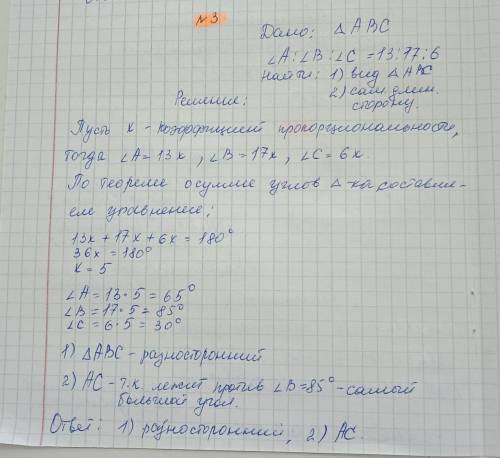 №3.
Дано: △ABC
∠A:∠B:∠C = 13:17:6
Найти: 1) вид △ABC
2) сам. длин.
сторону.
Решение:
Пусть x - коэффициент пропорциональности,
тогда ∠A = 13x, ∠B = 17x, ∠C = 6x.
По теореме о сумме углов △-ка, составля-
ем уравнение:
13x + 17x + 6x = 180°
36x = 180°
x = 5
∠A = 13·5 = 65°
∠B = 17·5 = 85°
∠C = 6·5 = 30°
1) △ABC - разносторонний
2) AC - т.к. лежит против ∠B = 85° - самый
большой угол.
Ответ: 1) разносторонний; 2) AC.